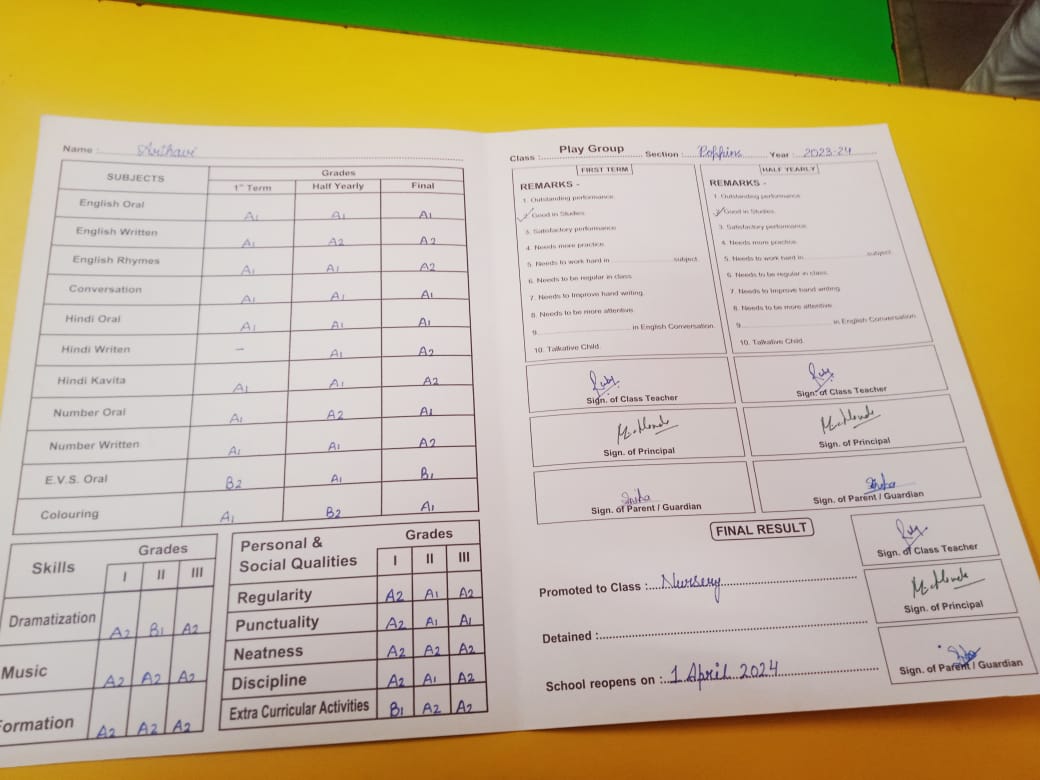 Name : Arthavi
SUBJECTS Grades
1st Term Half Yearly Final
English Oral A1 A1 A1
English Written A1 A2 A2
English Rhymes A1 A1 A2
Conversation A1 A1 A1
Hindi Oral A1 A1 A1
Hindi Writen – A1 A2
Hindi Kavita A1 A1 A2
Number Oral A1 A2 A1
Number Written A1 A1 A2
E.V.S. Oral B2 A1 B1
Colouring A1 B2 A1
Skills Grades
I II III
Dramatization A2 B1 A2
Music A2 A2 A2
Formation A2 A2 A2
Personal & Social Qualities Grades
I II III
Regularity A2 A1 A2
Punctuality A2 A1 A1
Neatness A2 A2 A2
Discipline A2 A1 A2
Extra Curricular Activities B1 A2 A2
Class : Play Group Section : Poppins Year : 2023-24
FIRST TERM
REMARKS -
1. Outstanding performance
✓ Good in Studies
3. Satisfactory performance
4. Needs more practice
5. Needs to work hard in subject
6. Needs to be regular in class
7. Needs to Improve hand writing
8. Needs to be more attentive
9. in English Conversation
10. Talkative Child
Sign. of Class Teacher
Sign. of Principal
Sign. of Parent / Guardian
HALF YEARLY
REMARKS -
1. Outstanding performance
✓ Good in Studies
3. Satisfactory performance
4. Needs more practice
5. Needs to work hard in subject
6. Needs to be regular in class
7. Needs to Improve hand writing
8. Needs to be more attentive
9. in English Conversation
10. Talkative Child
Sign. of Class Teacher
Sign. of Principal
Sign. of Parent / Guardian
FINAL RESULT
Promoted to Class : Nursery
Detained :
School reopens on : 1 April 2024
Sign. of Class Teacher
Sign. of Principal
Sign. of Parent / Guardian